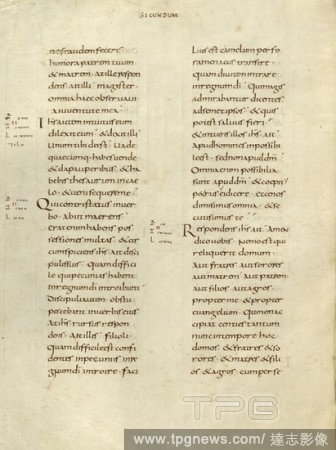 SECUNDUM
ne fraudem feceris
honora patrem tuum
& matrem. at ille respon
dens ait illi magister
omnia haec observavi
a iuventute mea
Ihs autem intuitus eum
dilexit eum & dixit illi
Unum tibi deest. Vade
quaecumq; habes vende
& da pauperibus & ha
bebis thesaurum in cae
lo & veni sequere me
Qui contristatus in ver
bo abiit maerens
erat enim habens pos
sessiones multas & cir
cumspiciens ihs ait disci
pulis suis Quam diffici
le qui pecunias habent
in regnum di introibunt
Discipuli autem obstu
pescebant in verbis eius
At ihs rursus respon
dens ait illis filioli
Quam difficile est confi
dentes in pecuniis in re
gnum di introire Faci
lius est camelum per fo
ramen acus transire
quam divitem intrare
in regnum di Qui magis
admirabantur dicentes
ad semetipsos & quis
potest salvus fieri
& intuens illos ihs ait
Apud homines impossibi
le est. sed non apud dm
Omnia enim possibilia
sunt apud dm & coepit
petrus ei dicere ecce nos
dimisimus omnia & se
cuti sumus te
Respondens ihs ait Amen
dico vobis Nemo est qui
reliquerit domum
aut fratres aut sorores
aut matrem aut patrem
aut filios aut agros
propter me & propter
evangelium Qui non ac
cipiat centies tantum
nunc in tempore hoc
domos & fratres & so
rores & matres & fili
os & agros cum perse
TPG
www.tpgnews.com/達志影像